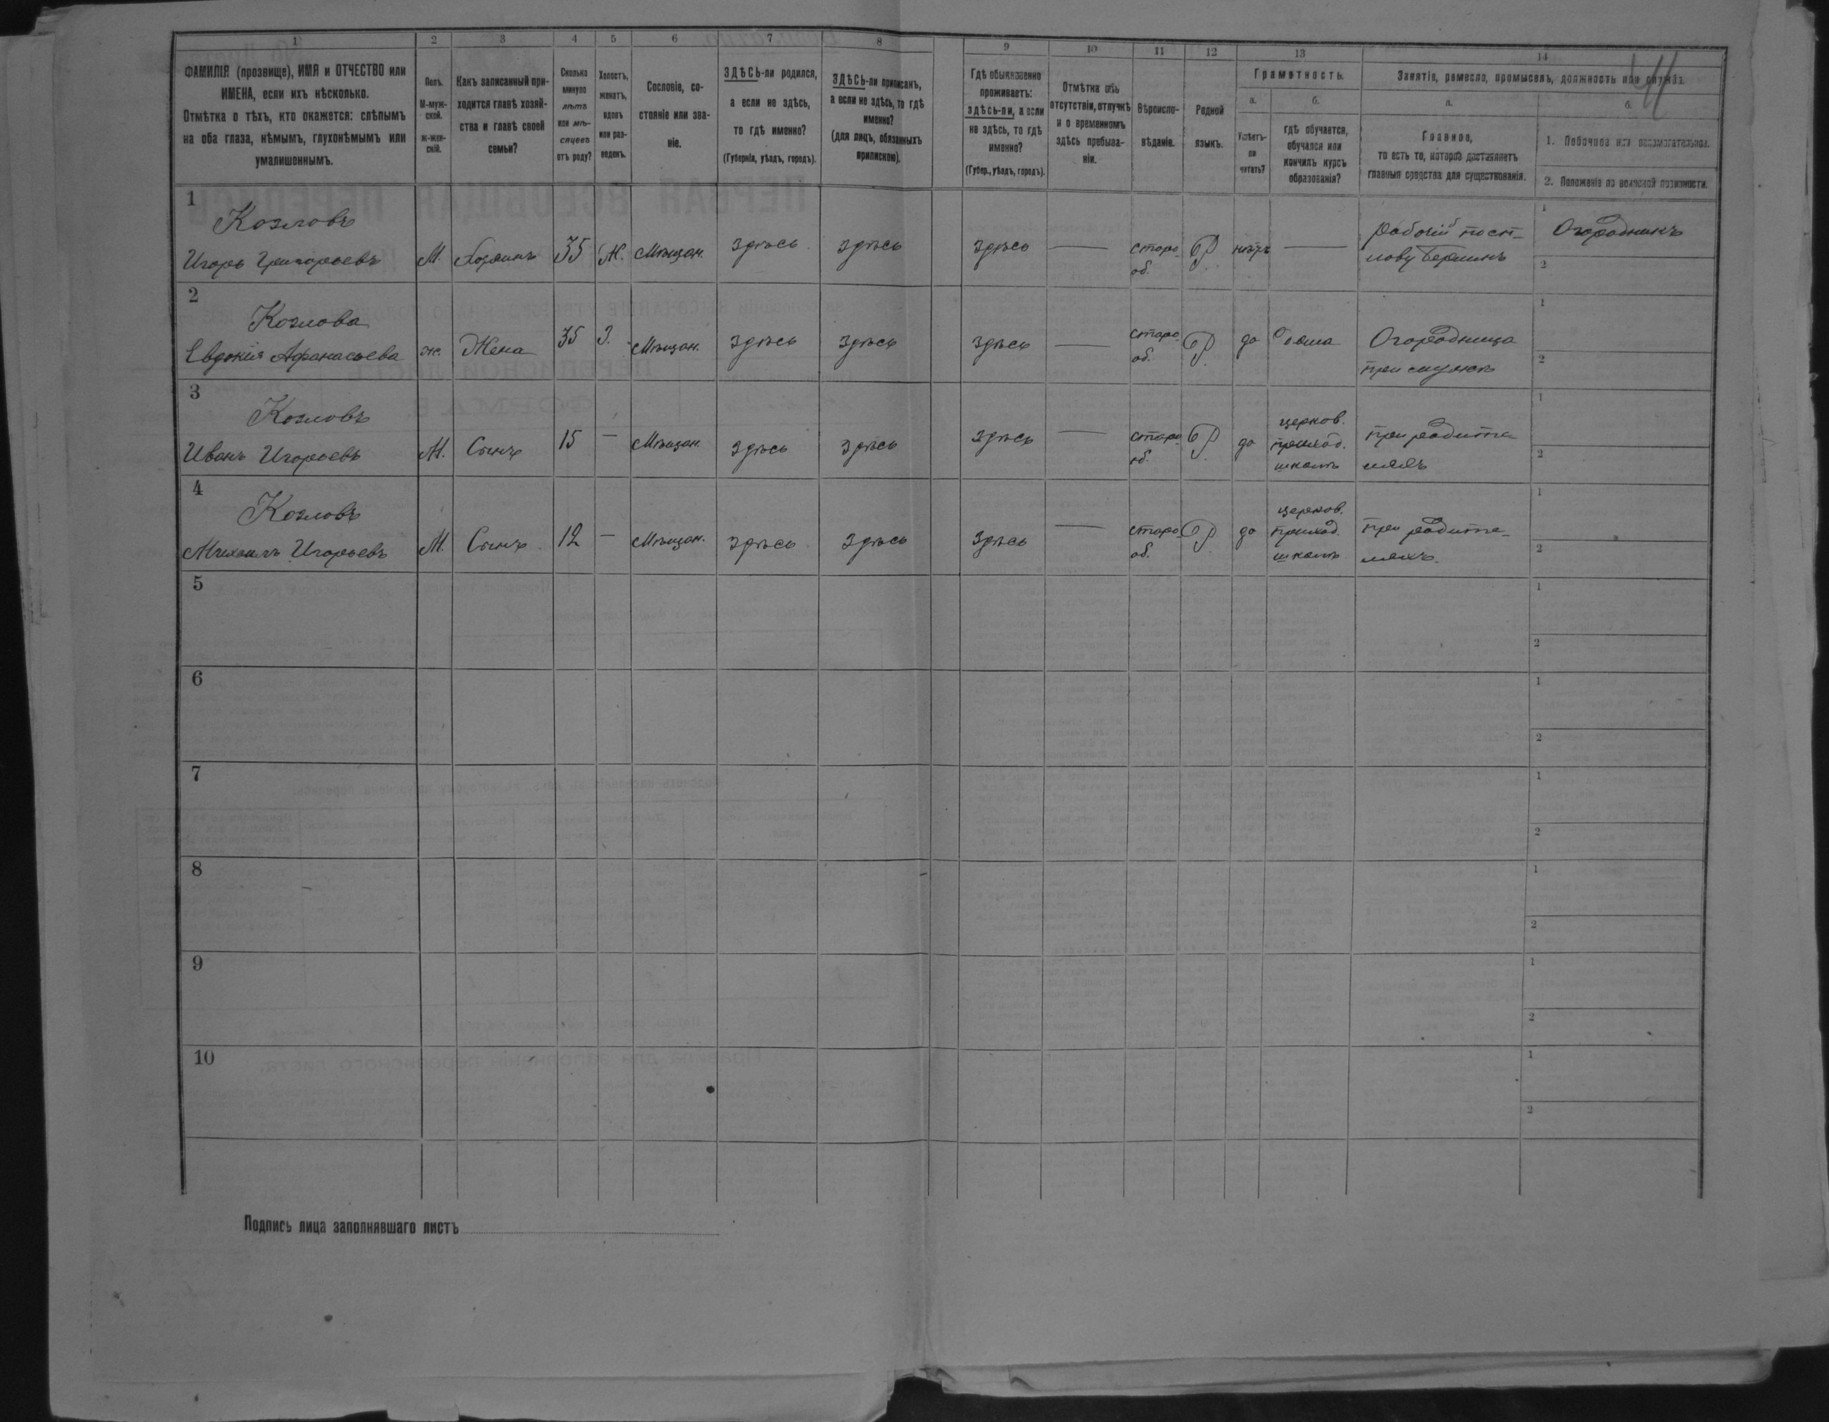 1 2 3 4 5 6 7 8 9 10 11 12 13 14
ФАМИЛІЯ (прозвище), ИМЯ и ОТЧЕСТВО или
ИМЕНА, если ихъ нѣсколько.
Отмѣтка о тѣхъ, кто окажется: слѣпымъ
на оба глаза, нѣмымъ, глухонѣмымъ или
умалишеннымъ.
Полъ.
М-муж-
ской.
ж-жен-
скій.
Какъ записанный при-
ходится главѣ хозяй-
ства и главѣ своей
семьи?
Сколько
минуло
лѣтъ
или мѣ-
сяцевъ
отъ роду?
Холостъ,
женатъ,
вдовъ
или раз-
веденъ.
Сословіе, со-
стояніе или зва-
ніе.
ЗДѢСЬ-ли родился,
а если не здѣсь,
то гдѣ именно?
(Губернія, уѣздъ, городъ).
ЗДѢСЬ-ли приписанъ,
а если не здѣсь, то гдѣ
именно?
(для лицъ, обязанныхъ
припискою).
Гдѣ обыкновенно
проживаетъ:
здѣсь-ли, а если
не здѣсь, то гдѣ
именно?
(Губер., уѣздъ, городъ).
Отмѣтка объ
отсутствіи, отлучкѣ
и о временномъ
здѣсь пребыва-
ніи.
Вѣроиспо-
вѣданіе.
Родной
языкъ.
Грамотность.
а.
Умѣетъ-
ли
читать?
б.
гдѣ обучается,
обучался или
кончилъ курсъ
образованія?
Занятія, ремесло, промыселъ, должность или служба.
44
а.
Главное,
то есть то, которое доставляетъ
главныя средства для существованія.
б.
1. Побочное или вспомогательное.
2. Положеніе по воинской повинности.
1
Козловъ
Игоръ Григорьевъ М. Хозяинъ 35 Ж. Мѣщан. здѣсь здѣсь здѣсь — старо
об. Р нѣтъ —
Рабочій
1 Огородникъ
2
2
Козлова
Евдокія Афанасьева ж. Жена 35 З. Мѣщан. здѣсь здѣсь здѣсь — старо
об. Р да дома
Огородница
при мужѣ
1
2
3
Козловъ
Иванъ Игорьевъ М. Сынъ 15 — Мѣщан. здѣсь здѣсь здѣсь — старо
об. Р да
церков.
приход.
школѣ
при родите-
ляхъ
1
2
4
Козловъ
Михаилъ Игорьевъ М. Сынъ 12 — Мѣщан. здѣсь здѣсь здѣсь — старо
об. Р да
церков.
приход.
школѣ
при родите-
ляхъ.
1
2
5
1
2
6
1
2
7
1
2
8
1
2
9
1
2
10
1
2
Подпись лица заполнявшаго листъ